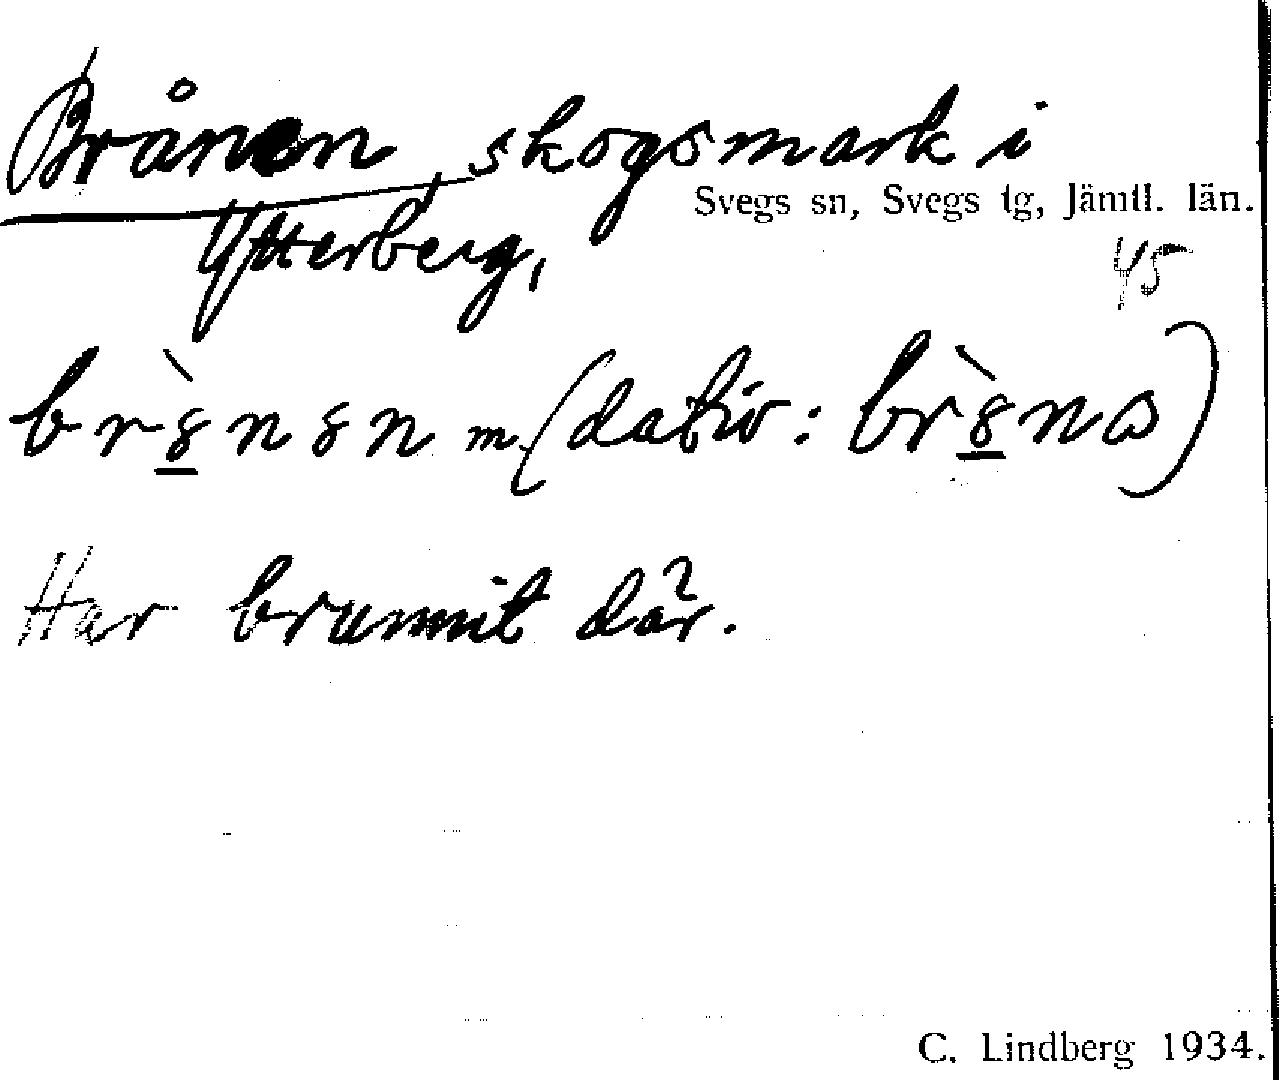 Brånen, skogsmark i
Svegs sn, Svegs tg, Jämtl. län.
Ytterberg,
45
m. (dativ:
Har brunnit där.
C. Lindberg 1934.